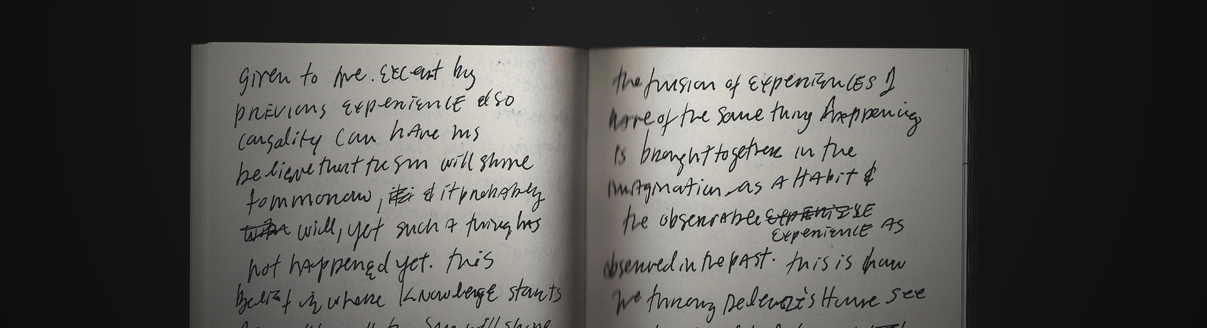 given to me. Except by
previous experience also
causality can have us
believe that the sun will shine
tommorow, & it probably
will, yet such a thing has
not happened yet. this
Belief is where knowledge starts
sun will shine
the fusion of experiences I
have of the same thing happening
is brought together in the
imagination as A HAbit &
the observable experience
Experience As
observed in the past. this is how
we throug Deleuze's Hume see